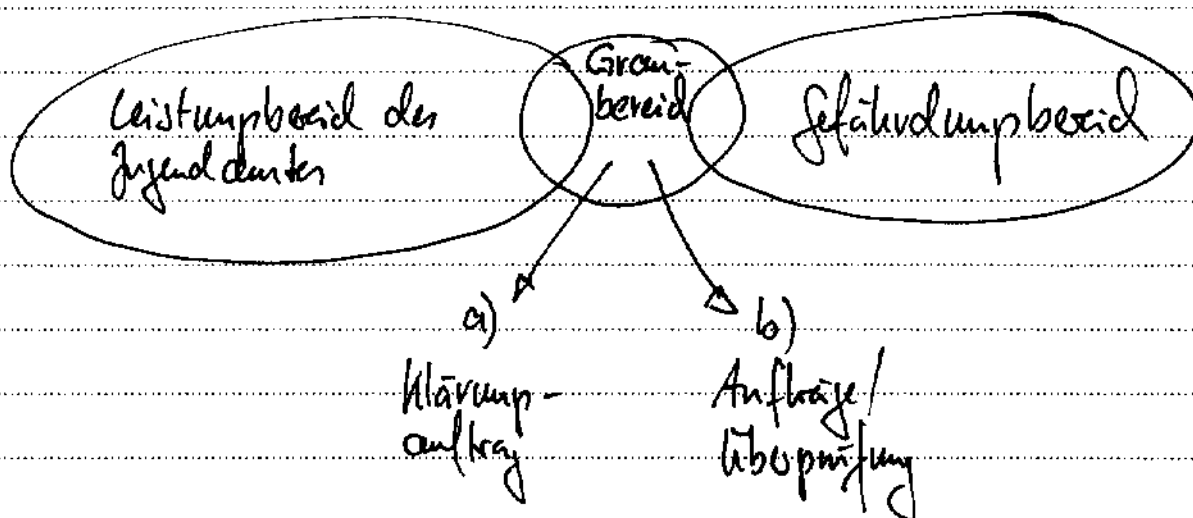 Leistungsbereich des
Jugendamtes
Grau-
bereich
Gefährdungsbereich
a)
Klärungs-
auftrag
b)
Aufträge/
Überprüfung